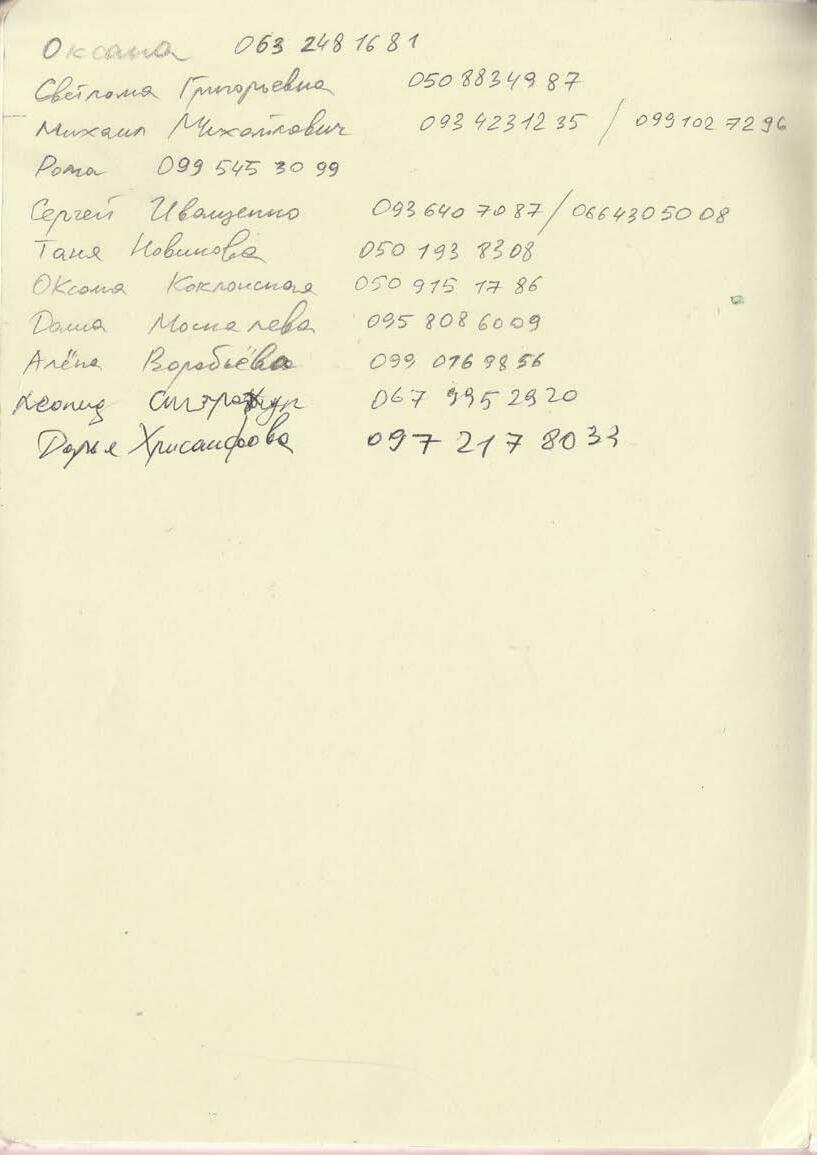 Оксана 063 248 16 81
Светлана Григорьевна 050 88 349 87
Михаил Михайлович 093 423 12 35 / 099 102 72 96
Рома 099 545 30 99
Сергей Иващенко 093 640 70 87 / 066 430 50 08
Таня Новикова 050 193 8308
Оксана 050 915 17 86
Даша Москалева 095 808 60 09
Алёна Воробьёва 099 076 98 56
Леонид 067 995 29 20
Дарья Хрисанфова 097 217 80 33